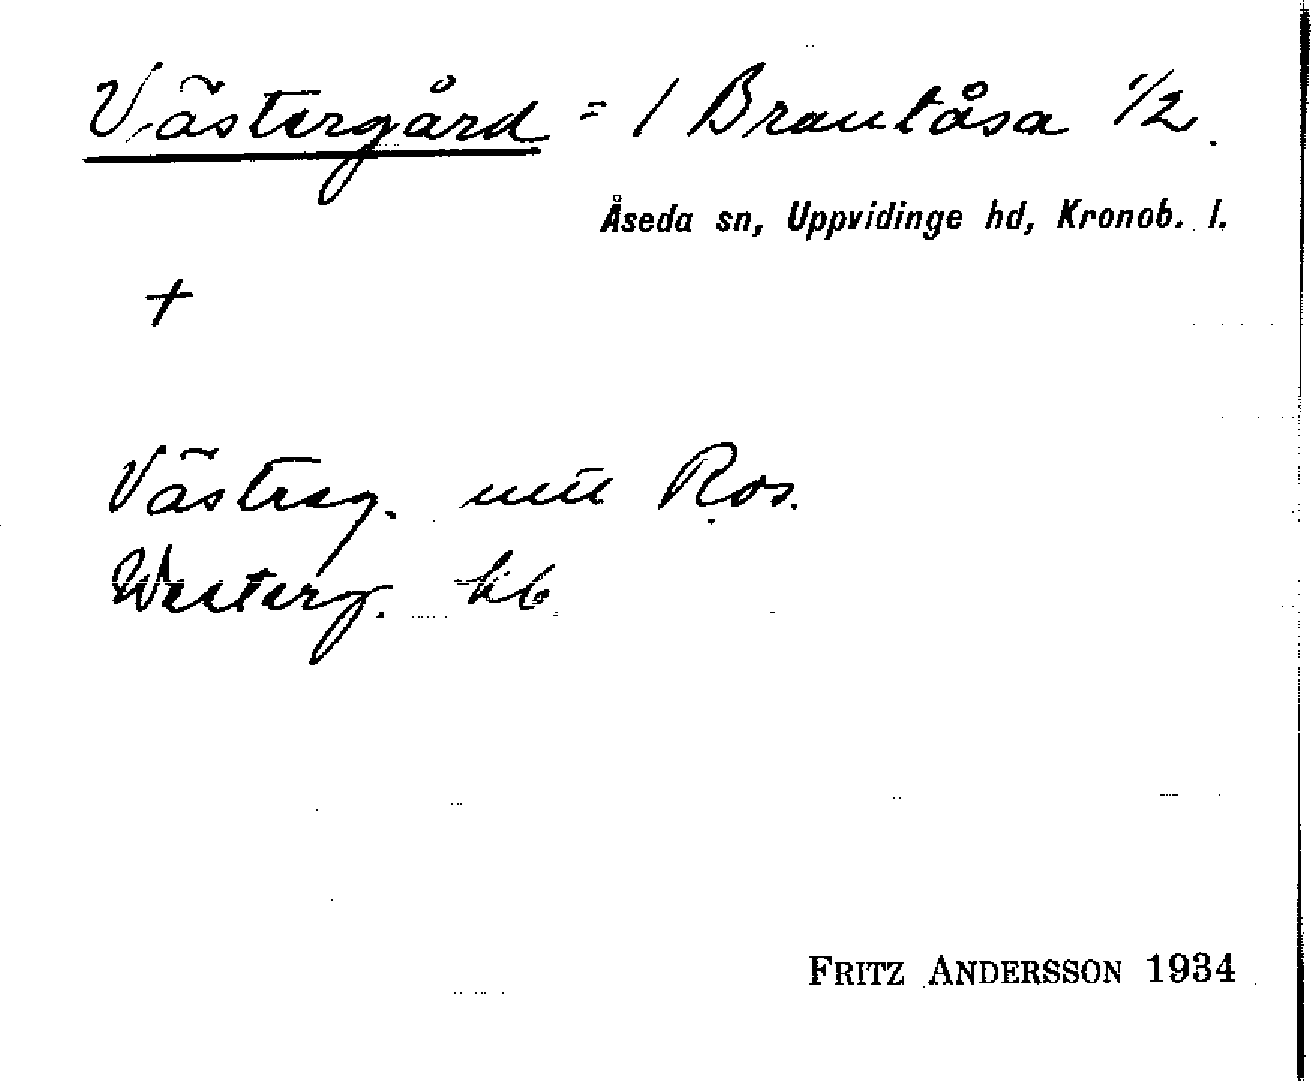 Västergård = / Brantåsa 1/2.
Åseda sn, Uppvidinge hd, Kronob. l.
+
Västreg. Ros.
Westerg. kb
FRITZ ANDERSSON 1934